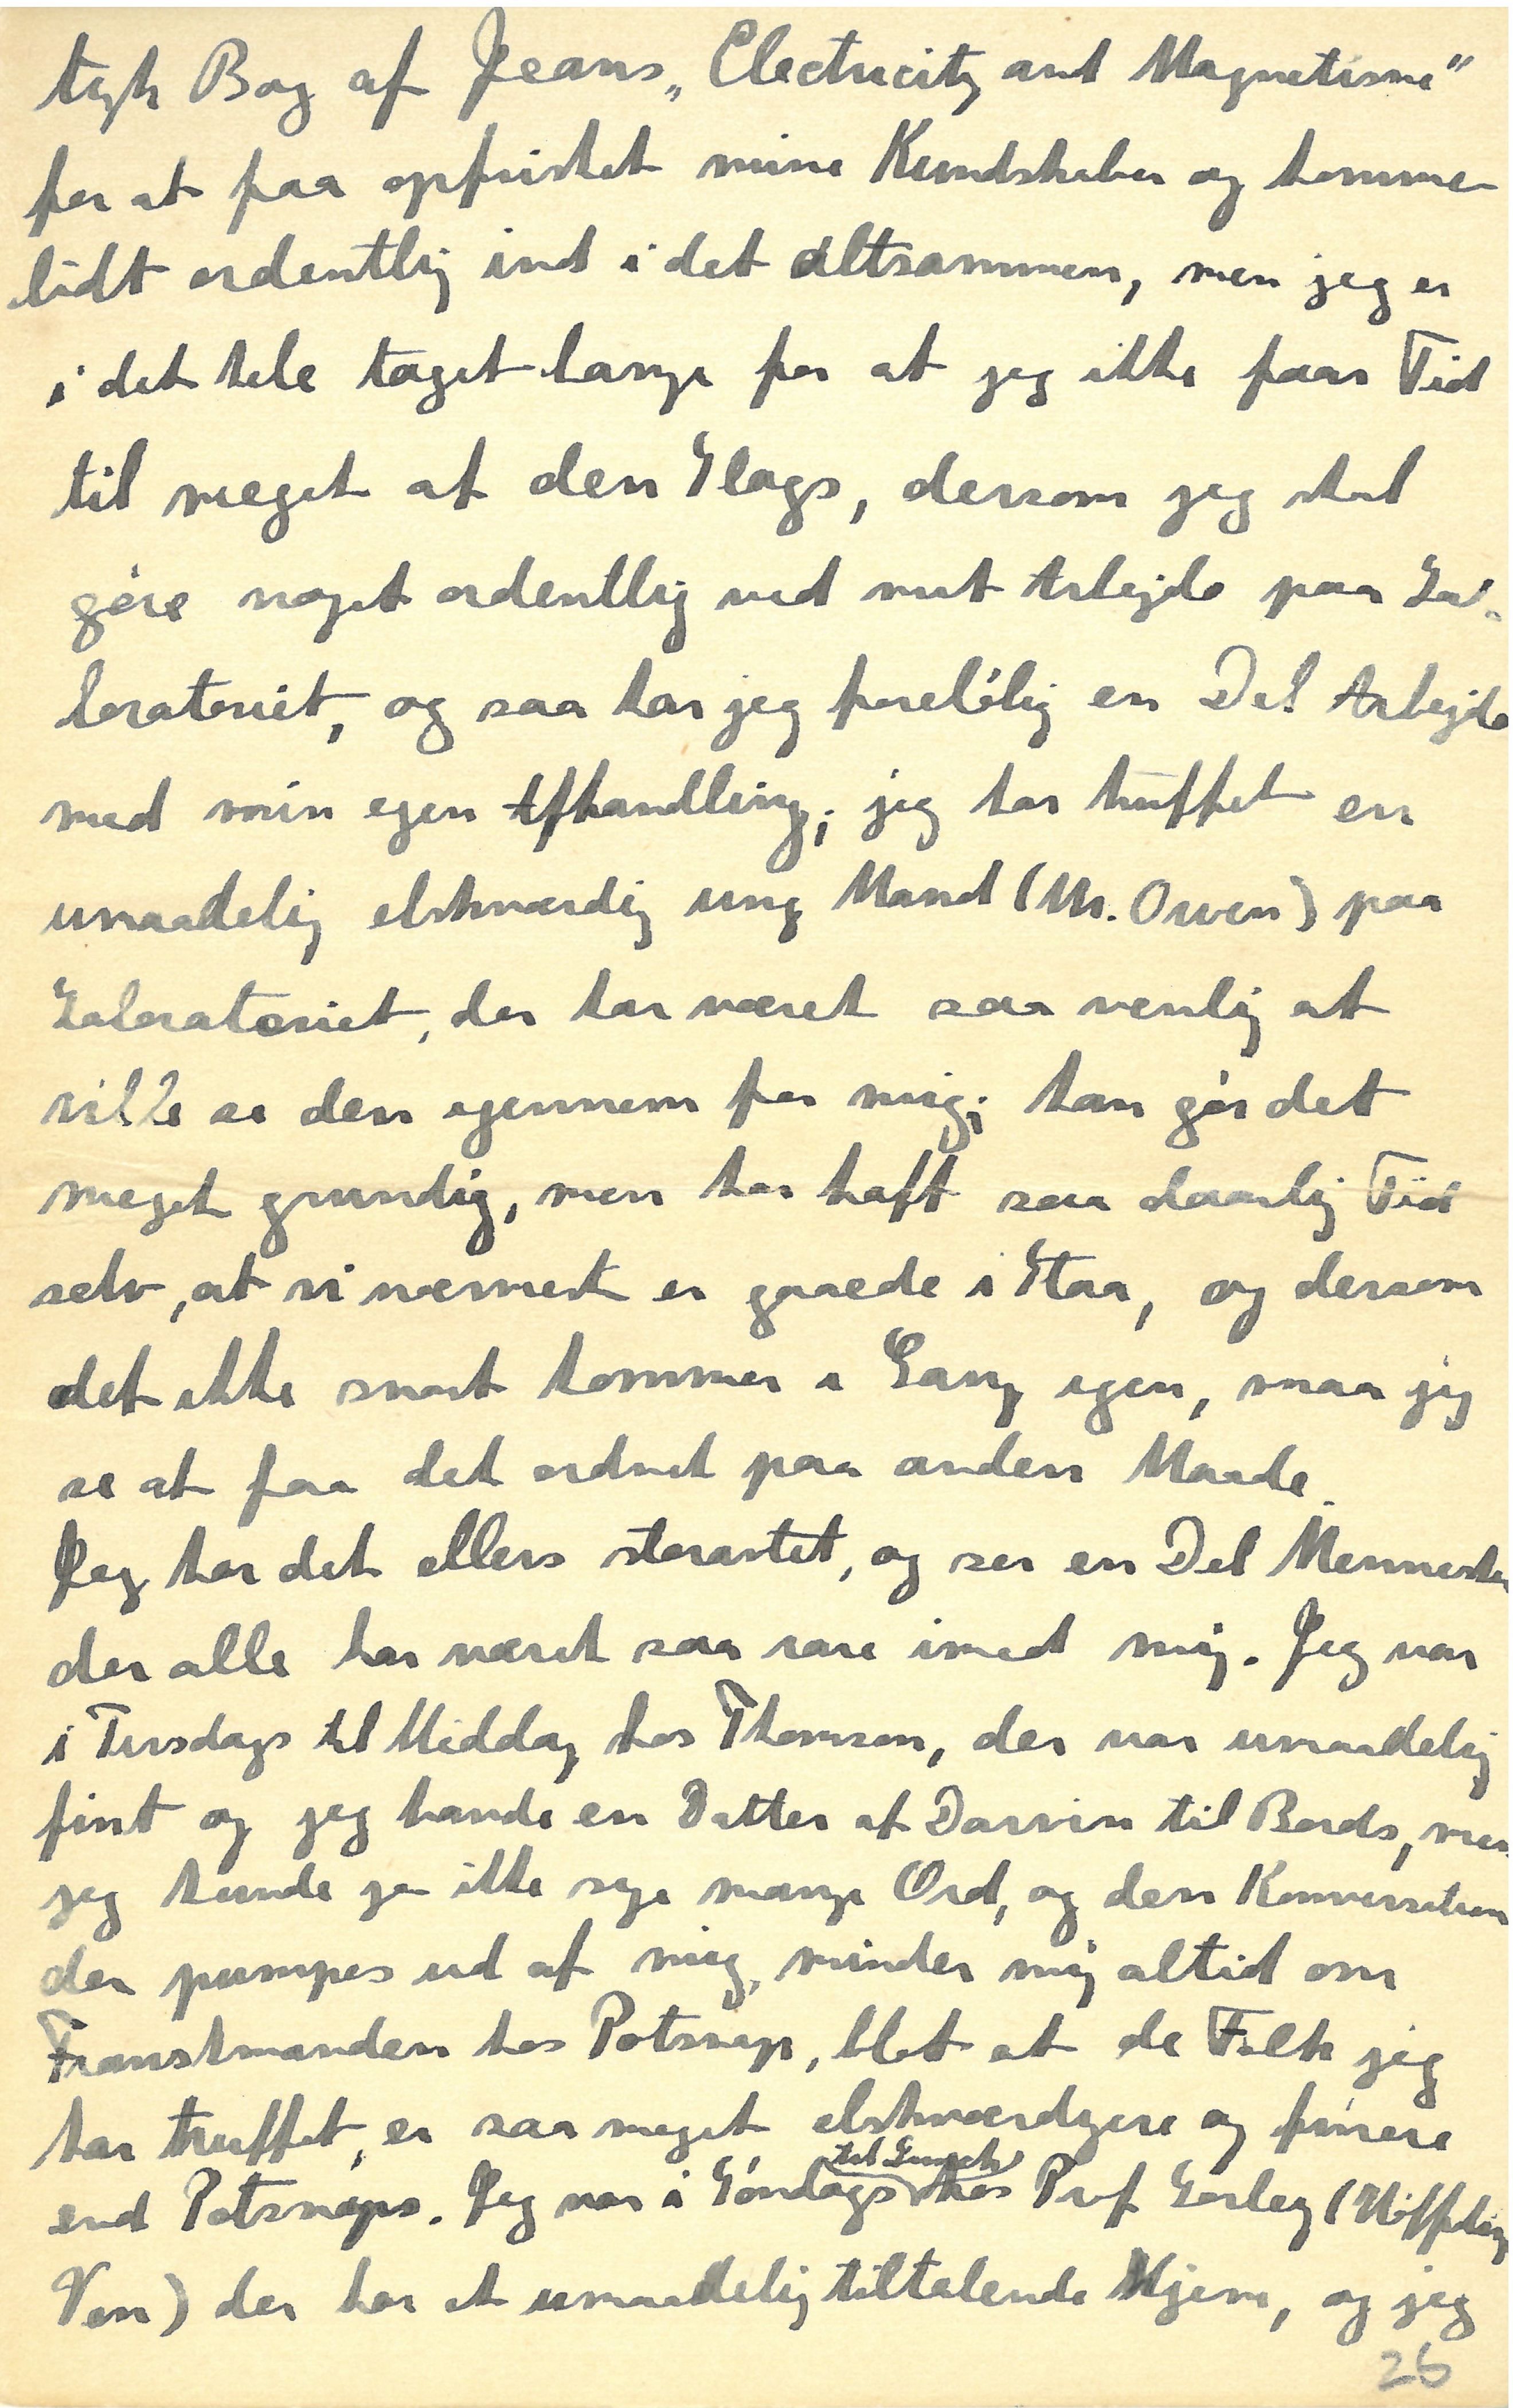 tyk Bog af Jeans „Electricity and Magnetisme"
for at faa opfrisket mine Kundskaber og komme
lidt ordentlig ind i det altsammen, men jeg er
i det hele taget bange for at jeg ikke faar Tid
til meget af den Slags, dersom jeg skal
gøre noget ordentlig ved mit Arbejde paa La-
boratoriet, og saa har jeg foreløbig en Del Arbejde
med min egen Afhandling; jeg har truffet en
umaadelig elskværdig ung Mand (Mr. Owen) paa
Laboratoriet, der har været saa venlig at
ville se den igennem for mig; han gør det
meget grundig, men har haft saa daarlig Tid
selv, at vi nærmest er gaaede i Staa, og dersom
det ikke snart kommer i Gang igen, maa jeg
se at faa det ordnet paa anden Maade.
Jeg har det ellers storartet, og ser en Del Mennesker
der alle har været saa rare imod mig. Jeg var
i Tirsdags til Middag hos Thomson, der var umaadelig
fint og jeg havde en Datter af Darwin til Bords, men
jeg kunde jo ikke sige mange Ord, og den Konversation
der pumpes ud af mig, minder mig altid om
Franskmanden hos Potsnap, blot at de Folk jeg
har truffet, er saa meget elskværdigere og finere
end Potsnaps. Jeg var i Søndags til Lunch hos Prof Sorley (Høffding
Ven) der har et umaadelig tiltalende Hjem, og jeg
26